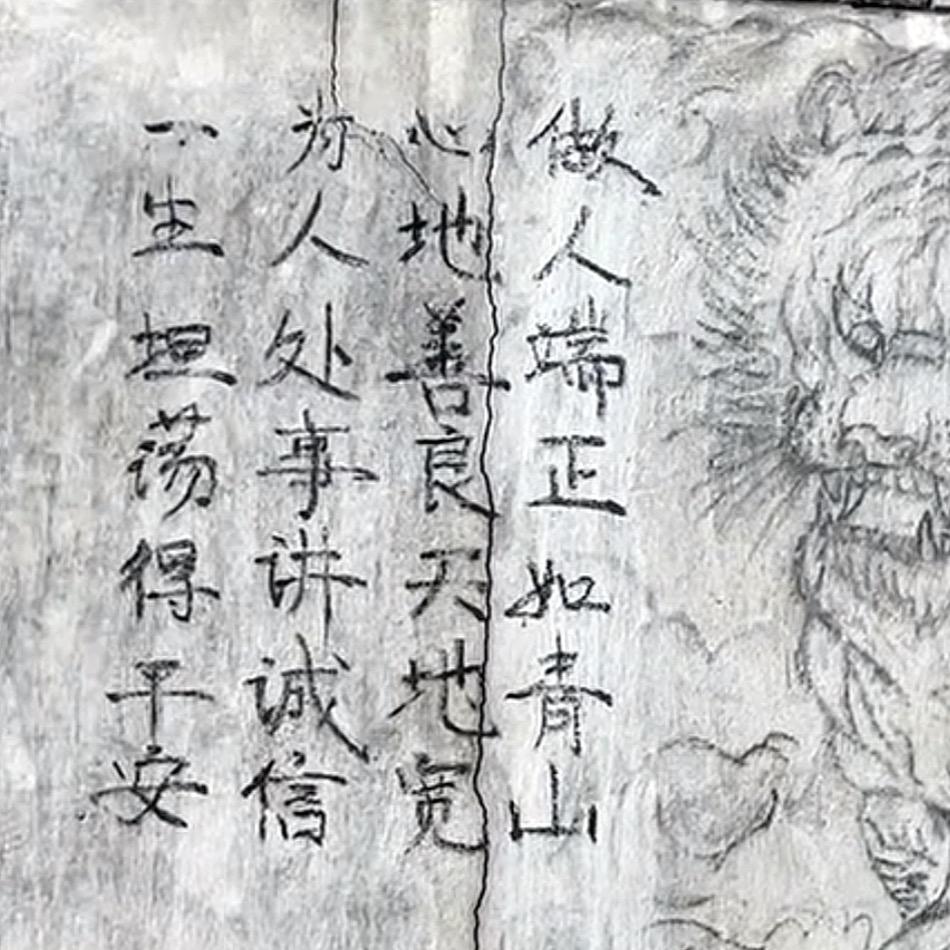 做人端正如青山
心地善良天地宽
为人处事讲诚信
一生坦荡得平安